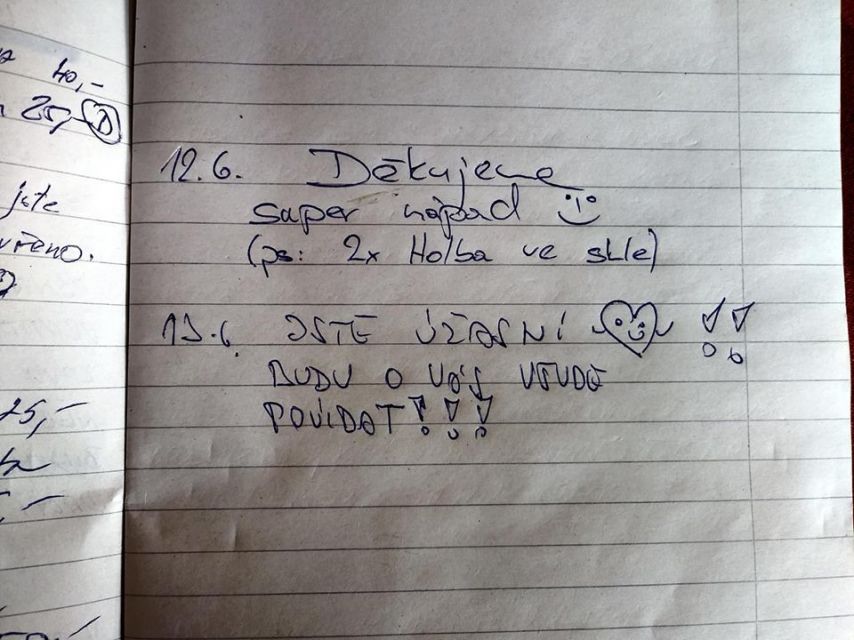 40,-
25,- D
jste
12.6. Děkujeme
super nápad
(ps: 2x Holba ve skle)
13.6. JSTE ÚŽASNÍ !!
BUDU O VÁS VŠUDE
POVÍDAT!!!
25,-